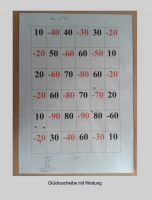 10 -40 40 -30 30 -20
-20 50 -60 60 -50 10
20 -60 70 -70 50 -40
30 -50 80 -80 40 -30
40 -80 60 -70 20
10 -90 90 -20 80 -60
-20 30 -40 40 -30 10
Glücksscheibe mit Wertung